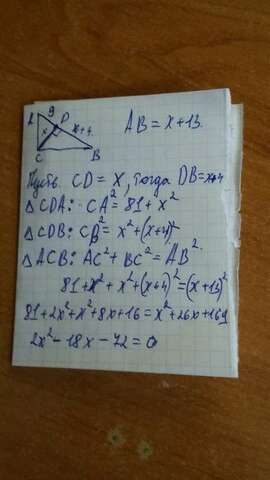 A 9 D x x+4 C B
AB = x+13.
Пусть CD = x, тогда DB = x+4
△ CDA: CA² = 81 + x²
△ CDB: CB² = x² + (x+4)²
△ ACB: AC² + BC² = AB².
81 + x² + x² + (x+4)² = (x+13)²
81 + 2x² + x² + 8x + 16 = x² + 26x + 169
2x² - 18x - 72 = 0